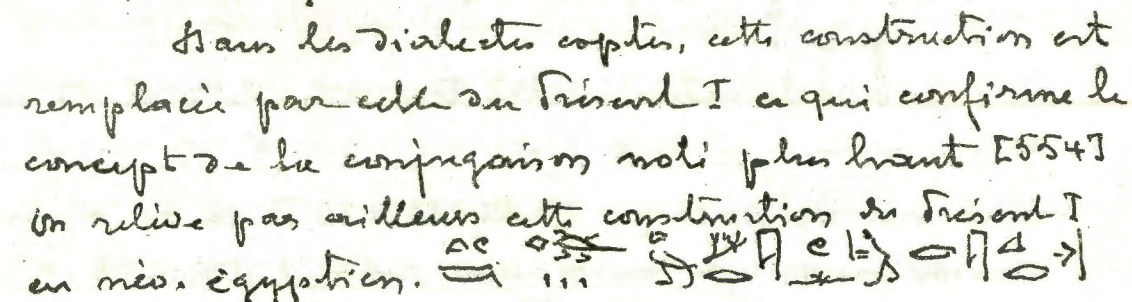 Dans les dialectes coptes, cette construction est
remplacée par celle du Présent I ce qui confirme le
concept de la conjugaison noté plus haut [554]
on relève par ailleurs cette construction du Présent I
en néo-égyptien.